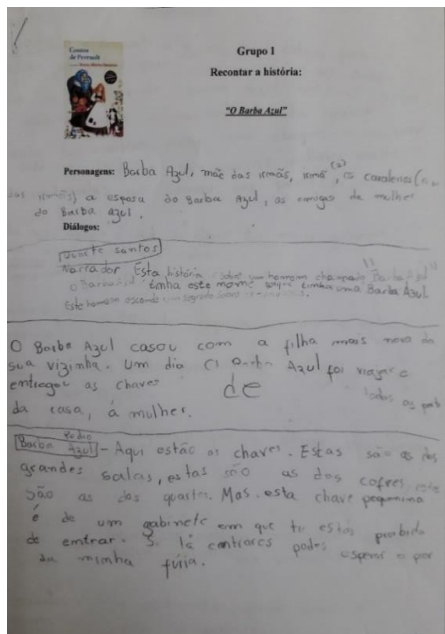 Contos de Perrault
Grupo 1
Recontar a história:
"O Barba Azul"
Personagens: Barba Azul, mãe das irmãs, irmã (2), os cavaleiros (
irmãs) a esposa do Barba Azul, as amigas da mulher
do Barba Azul.
Diálogos:
santos
Narrador Esta história sobre um homem chamado "Barba Azul"
O Barba Azul tinha este nome tinha uma Barba Azul
Este homem esconde um segredo
O Barba Azul casou com a filha mais nova da
sua vizinha. Um dia O Barba Azul foi viajar e
entregou as chaves de todas as
da casa, á mulher.
Barba Azul - Aqui estão as chaves. Estas são as das
grandes salas, estas são as dos cofres, estas
São as dos quartos. Mas esta chave pequenina
é de um gabinete em que tu estás proibida
de emtrar. Se lá entrares podes esperar o pior
da minha fúria.